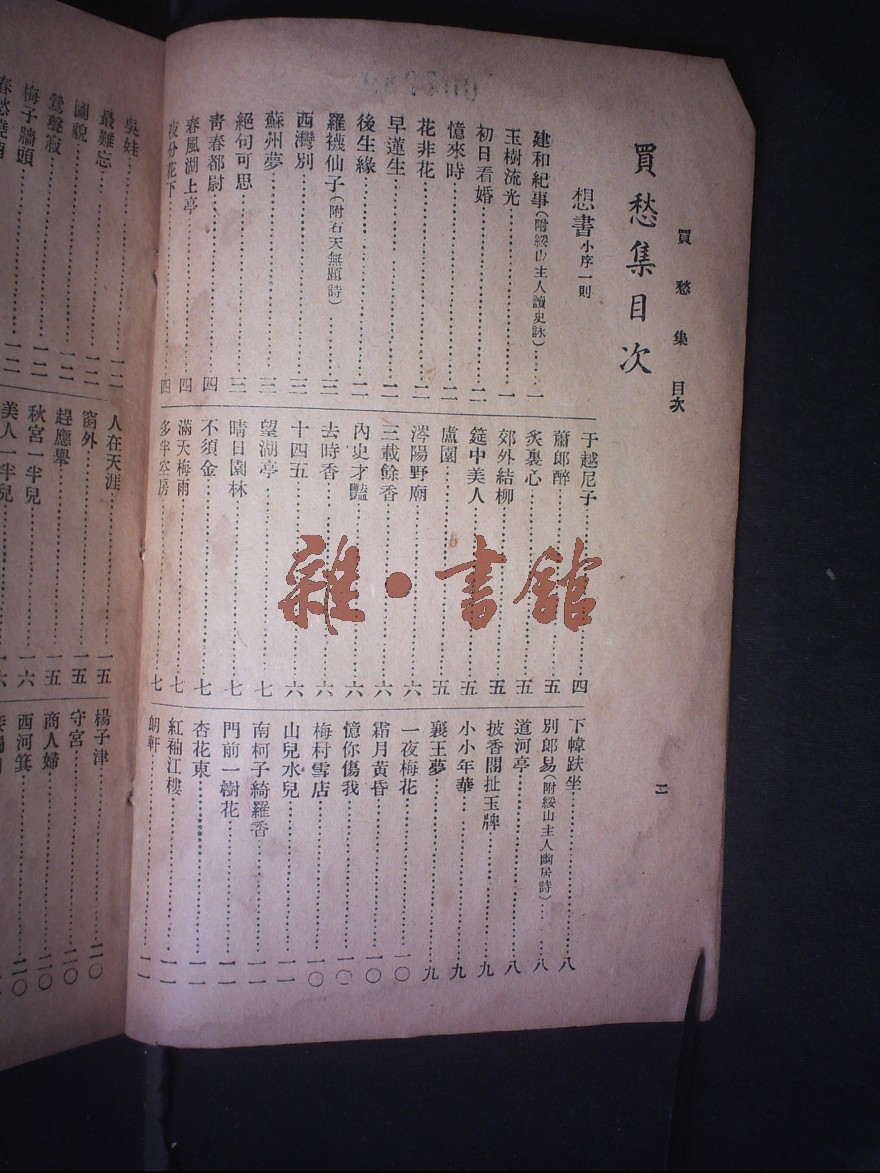 買愁集 目次
二
買愁集目次
想書小序一則
建和紀事(附綏山主人讀史詠)……一
玉樹流光……一
初日看婚……二
憶來時……二
花非花……二
早蓮生……二
後生緣……二
羅襪仙子(附右天無題詩)……三
西灣別……三
蘇州夢……三
絕句可思……三
靑春都尉……四
春風湖上亭……四
夜分花下……四
于越尼子……四
蕭郎醉……五
炙裏心……五
郊外結柳……五
筵中美人……五
盧園……五
涔陽野廟……六
三載餘香……六
內史才豔……六
去時香……六
十四五……六
望湖亭……七
晴日園林……七
不須金……七
滿天梅雨……七
多半空房……七
下幃趺坐……八
別郎易(附綏山主人幽居詩)……八
道河亭……八
披香閣扯玉牌……九
小小年華……九
襄王夢……九
一夜梅花……一〇
霜月黃昏……一〇
憶你傷我……一〇
梅村雪店……一〇
山兒水兒……一一
南柯子綺羅香……一一
門前一樹花……一一
杏花東……一一
紅袖江樓……一一
朗軒……一一
吳娃……一二
最難忘……一二
圖貌……一二
鶯聲寂……一二
梅子牆頭……一二
人在天涯……一五
窗外……一五
趕應舉……一五
秋宮一半兒……一六
美人一半兒……一六
楊子津……二〇
守宮……二〇
商人婦……二〇
西河箕……二〇
雜·書館